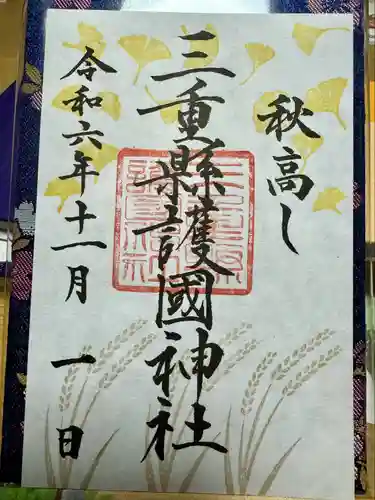 秋高し
三重縣護國神社
令和六年十一月一日